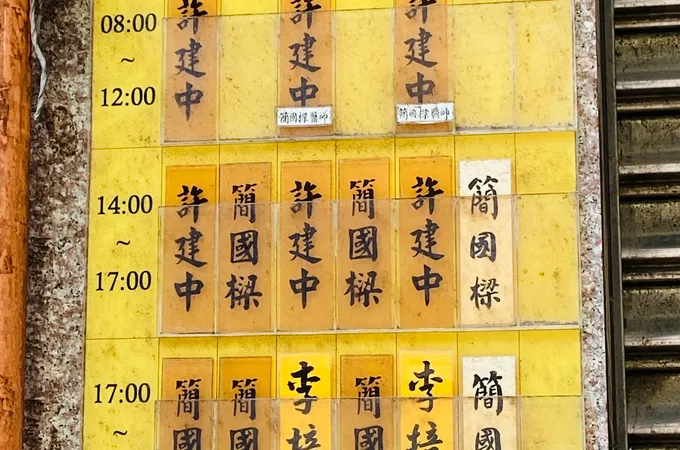 08:00
~
12:00
許建中
許建中
簡國樑醫師
許建中
簡國樑醫師
14:00
~
17:00
許建中
簡國樑
許建中
簡國樑
許建中
簡國樑
17:00
~
簡國
簡國
李培
簡國
李培
簡國